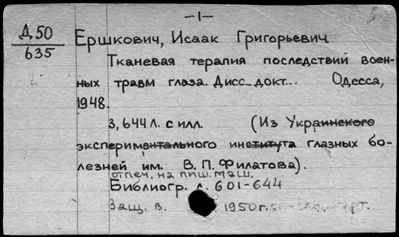 -1-
Д.50
635
Ершкович, Исаак Григорьевич
Тканевая терапия последствий воен-
ных травм глаза. Дисс. докт... Одесса,
1948.
3, 644 л. с илл. (Из Украинского
экспериментального института глазных бо-
лезней им. В. П. Филатова).
отпеч. на пиш. маш.
Библиогр. л. 601-644
Защ. в. 1950 г.